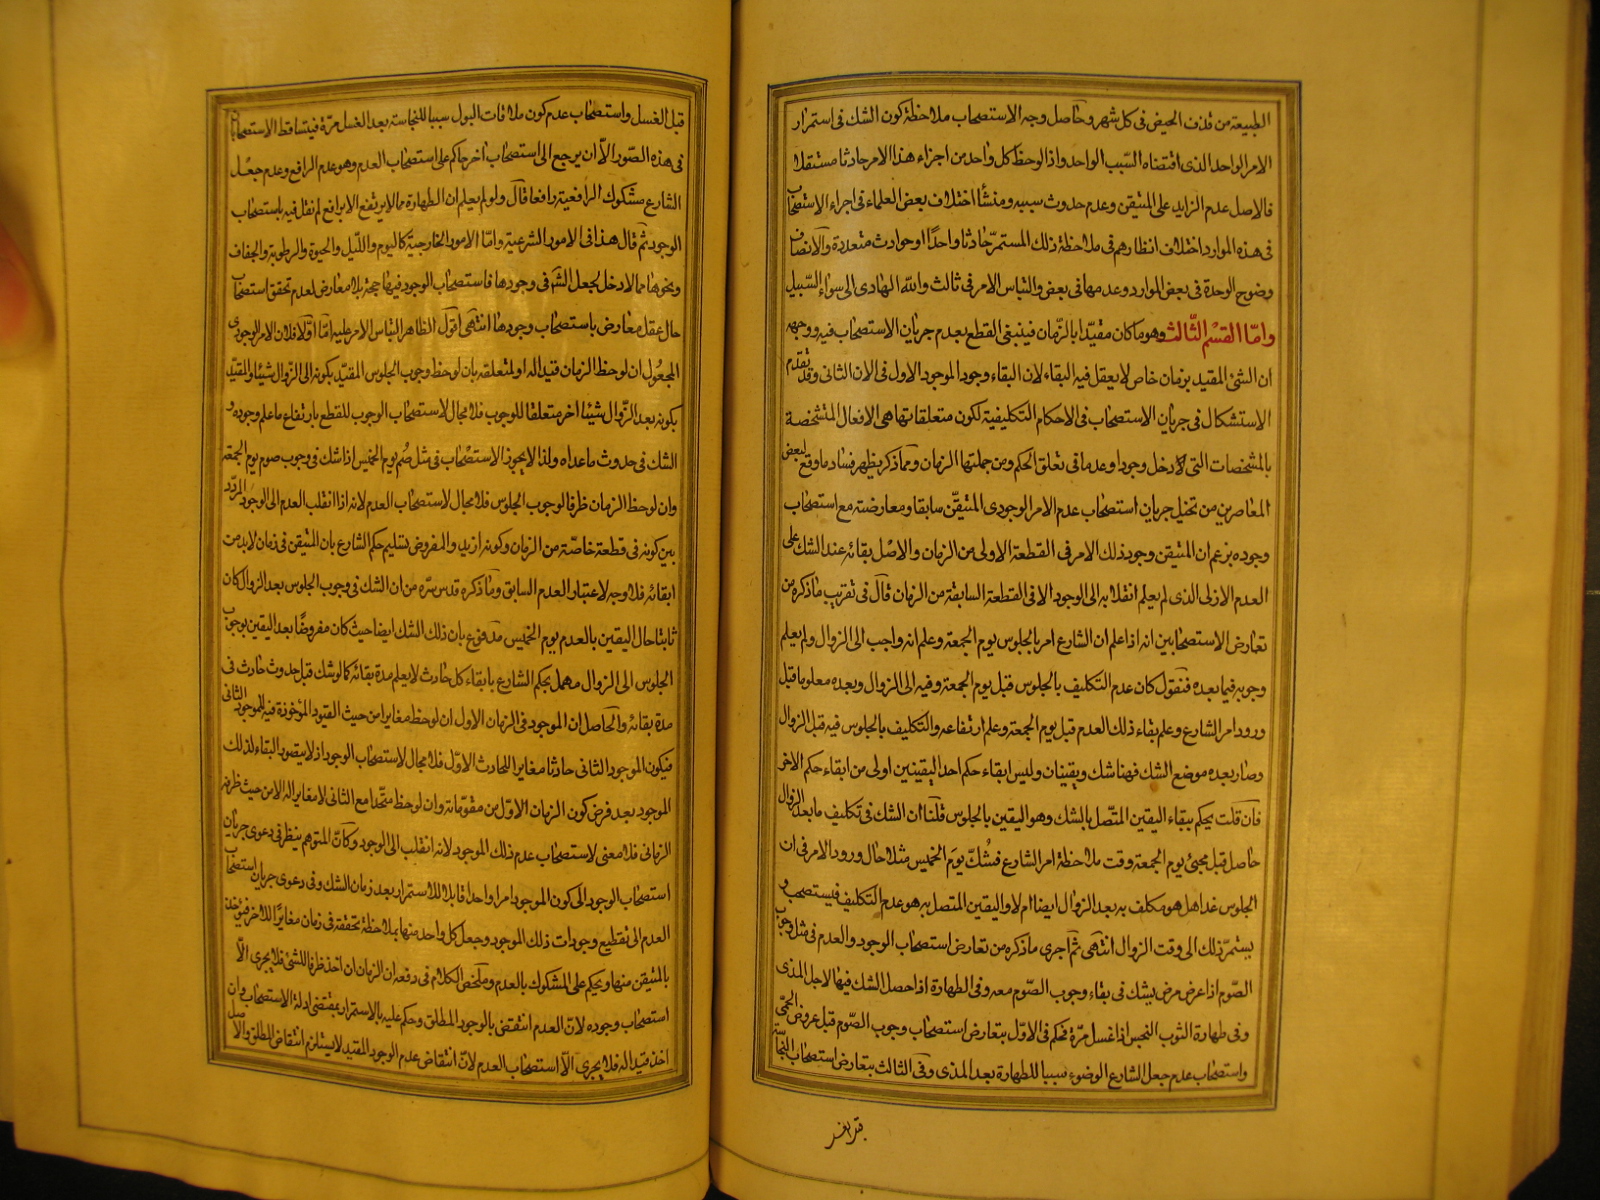 الطبيعة من قذف الحيض فى كل شهر وحاصل وجه الاستصحاب ملاحظة كون الشك فى استمرار
الامر الواحد الذى اقتضاه السّبب الواحد واذا لوحظ كل واحد من اجزاء هذا الامر حادثا مستقلا
فالاصل عدم الزايد على المتيقن وعدم حدوث سببه ومنشأ اختلاف بعض العلماء فى اجراء الاستصحاب
فى هذه الموارد اختلاف انظارهم فى ملاحظة ذلك المستمرّ حادثا واحدًا او حوادث متعددة والانصاف
وضوح الوحدة فى بعض الموارد وعدمها فى بعض والتباس الامر فى ثالث والله الهادى الى سواء السّبيل
وامّا القسْم الثّالث وهو ما كان مقيّدا بالزّمان فينبغى القطع بعدم جريان الاستصحاب فيه ووجهه
ان الشئ المقيد بزمان خاص لا يعقل فيه البقاء لان البقاء وجود الموجود الاول فى الان الثانى وقد تقدّم
الاستشكال فى جريان الاستصحاب فى الاحكام التكليفية لكون متعلقاتها هى الافعال المتشخصة
بالمشخصات التى لا دخل وجودا وعدما فى تعلق الحكم ومن جملتها الزمان ومما ذكر يظهر فساد ما وقع لبعض
المعاصرين من تخيل جريان استصحاب عدم الامر الوجودى المتيقّن سابقا ومعارضته مع استصحاب
وجوده بزعم ان المتيقن وجود ذلك الامر فى القطعة الاولى من الزمان والاصْل بقائه عند الشك على
العدم الازلى الذى لم يعلم انقلابه الى الوجود الا فى القطعة السابقة من الزمان قال فى تقريب ما ذكره من
تعارض الاستصحابين انه اذا علم ان الشارع امر بالجلوس يوم الجمعة وعلم انه واجب الى الزوال ولم يعلم
وجوبه فيما بعده فنقول كان عدم التّكليف بالجلوس قبل يوم الجمعة وفيه الى الزوال وبعده معلوما قبل
ورود امر الشارع وعلم بقاء ذلك العدم قبل يوم الجمعة وعلم ارتفاعه والتكليف بالجلوس فيه قبل الزوال
وصار بعده موضع الشك فهنا شك ويقينان وليس ابقاء حكم احد اليقينين اولى من ابقاء حكم الاخر
فان قلت يحكم ببقاء اليقين المتّصل بالشك وهو اليقين بالجلوس قلنا ان الشك فى تكليف ما بعد الزوال
حاصل قبل مجيئ يوم الجمعة وقت ملاحظة امر الشارع فشُكّ يوم الخميس مثلا حال ورود الامر فى ان
الجلوس غدا هل هو مكلف به بعد الزوال ايضا ام لا واليقين المتصل به هو عدم التكليف فيستصحب و
يستمرّ ذلك الى وقت الزوال انتهى ثمّ اجرى ما ذكره من تعارض استصحاب الوجود والعدم فى مثل وجوب
الصّوم اذا عرض مرض يشك فى بقاء وجوب الصّوم معه وفى الطهارة اذا حصل الشك فيها لاجل المذى
وفى طهارة الثوب النجس اذا غسل مرّة فحكم فى الاوّل بتعارض استصحاب وجوب الصّوم قبل عروض الحمّى
واستصحاب عدم جعل الشارع الوضوء سببا للطهارة بعد المذى وفى الثالث بتعارض استصحاب النجاسة
قبل الغسل واستصحاب عدم كون ملاقات البول سببا للنجاسته بعد الغسل مرّة فيتساقط الاستصحابان
فى هذه الصّور الاّ ان يرجع الى استصحاب اخر حاكم على استصحاب العدم وهو عدم الرافع وعدم جعْل
الشارع مشكوك الرافعية رافعا قال ولو لم يعلم ان الطهارة مما لا يرتفع الا برافع لم نقل فيه باستصحاب
الوجود ثم قال هذا فى الامور الشرعية وامّا الامور الخارجية كاليوم والليل والحيوة والرطوبة والجفاف
ونحوها مما لا دخل لجعل الشرع فى وجودها فاستصحاب الوجود فيها حجة بلا معارض لعدم تحقق استصحاب
حال عقل معارض باستصحاب وجودها انتهى اقول الظاهر التباس الامر عليه امّا اوّلا فلان الامر الوجودى
المجعُول ان لوحظ الزمان قيدا له او لمتعلقه بان لوحظ وجوب الجلوس المقيّد بكونه الى الزوال شيئا والمقيّد
بكونه بعد الزّوال شيئا اخر متعلقا للوجوب فلا مجال لاستصحاب الوجوب للقطع بارتفاع ما علم وجوده و
الشك فى حدوث ما عداه ولذا لا يجوز الاستصْحاب فى مثل صُم يوم الخميس اذا شك فى وجوب صوم يوم الجمعة
وان لوحظ الزمان ظرفا لوجوب الجلوس فلا مجال لاستصحاب العدم لانه اذا انقلب العدم الى الوجود المردّد
بين كونه فى قطعة خاصّة من الزمان وكونه ازيد والمفروض تسليم حكم الشارع بان المتيقن فى زمان لا بد من
ابقائه فلا وجه لاعتبار العدم السابق وما ذكره قدس سرّه من ان الشك فى وجوب الجلوس بعد الزوال كان
ثابتا حال اليقين بالعدم يوم الخميس مدفوع بان ذلك الشك ايضا حيث كان مفروضًا بعد اليقين بوجوب
الجلوس الى الزوال مهمل بحكم الشارع بابقاء كل حادث لا يعلم مدة بقائه كما لو شك قبل حدوث حادث فى
مدة بقائه والحاصل ان الموجود فى الزمان الاول ان لوحظ مغايرا من حيث القيود المأخوذة فيه للموجود الثانى
فيكون الموجود الثانى حادثا مغايرا للحادث الاوّل فلا مجال لاستصحاب الوجود اذ لا يتصور البقاء لذلك
الموجود بعد فرض كون الزمان الاوّل من مقوّماته وان لوحظ متّحدا مع الثانى لا مغايرا له الا من حيث ظرفه
الزمانى فلا معنى لاستصحاب عدم ذلك الموجود لانه انقلب الى الوجود وكانّ المتوهم ينظر فى دعوى جريان
استصحاب الوجود الى كون الموجود امرا واحدا قابلا للاستمرار بعد زمان الشك وفى دعوى جريان استصحاب
العدم الى تقطيع وجودات ذلك الموجود وجعل كل واحد منها بملاحظة تحققه فى زمان مغايرًا للاخر فيؤخذ
بالمتيقن منها ويحكم على المشكوك بالعدم وملخص الكلام فى دفعه ان الزمان ان اخذ ظرفا للشئ فلا يجرى الاّ
استصحاب وجوده لانّ العدم انتقض بالوجود المطلق وحكم عليه بالاستمرار بمقتضى ادلة الاستصحاب وان
اخذ قيدا له فلا يجرى الاّ استصحاب العدم لانّ انتقاض عدم الوجود المقيد لا يستلزم انتقاض المطلق والاصل